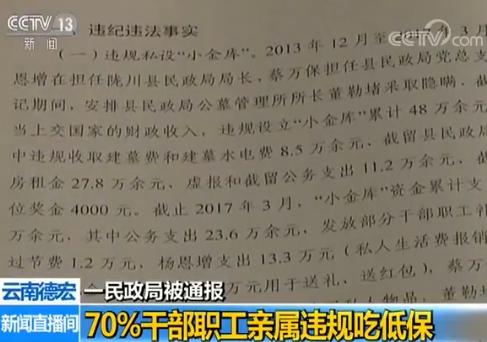 CCTV 13
新闻
CCTV.com
、违纪违法事实
(一)违规私设“小金库”。2013 年 12 月至 3 月
恩增在担任陇川县民政局局长、蔡万保担任县民政局党总支
记期间,安排县民政局公墓管理所所长董勒堵采取隐瞒、截
当上交国家的财政收入,违规设立“小金库”累计 48 万余元
中违规收取建墓费和建墓水电费 8.5 万余元、截留县民政
房租金 27.8 万余元、虚报和截留公务支出 11.2 万余元、
位奖金 4000 元。截止 2017 年 3 月,“小金库”资金累计支
万余元,其中公务支出 23.6 万余元,发放部分干部职工补
过节费 1.2 万元,杨恩增支出 13.3 万元(私人生活费报销
万元用于送礼、送红包),蔡万
董勒堵
云南德宏
一民政局被通报
新闻直播间
70%干部职工亲属违规吃低保